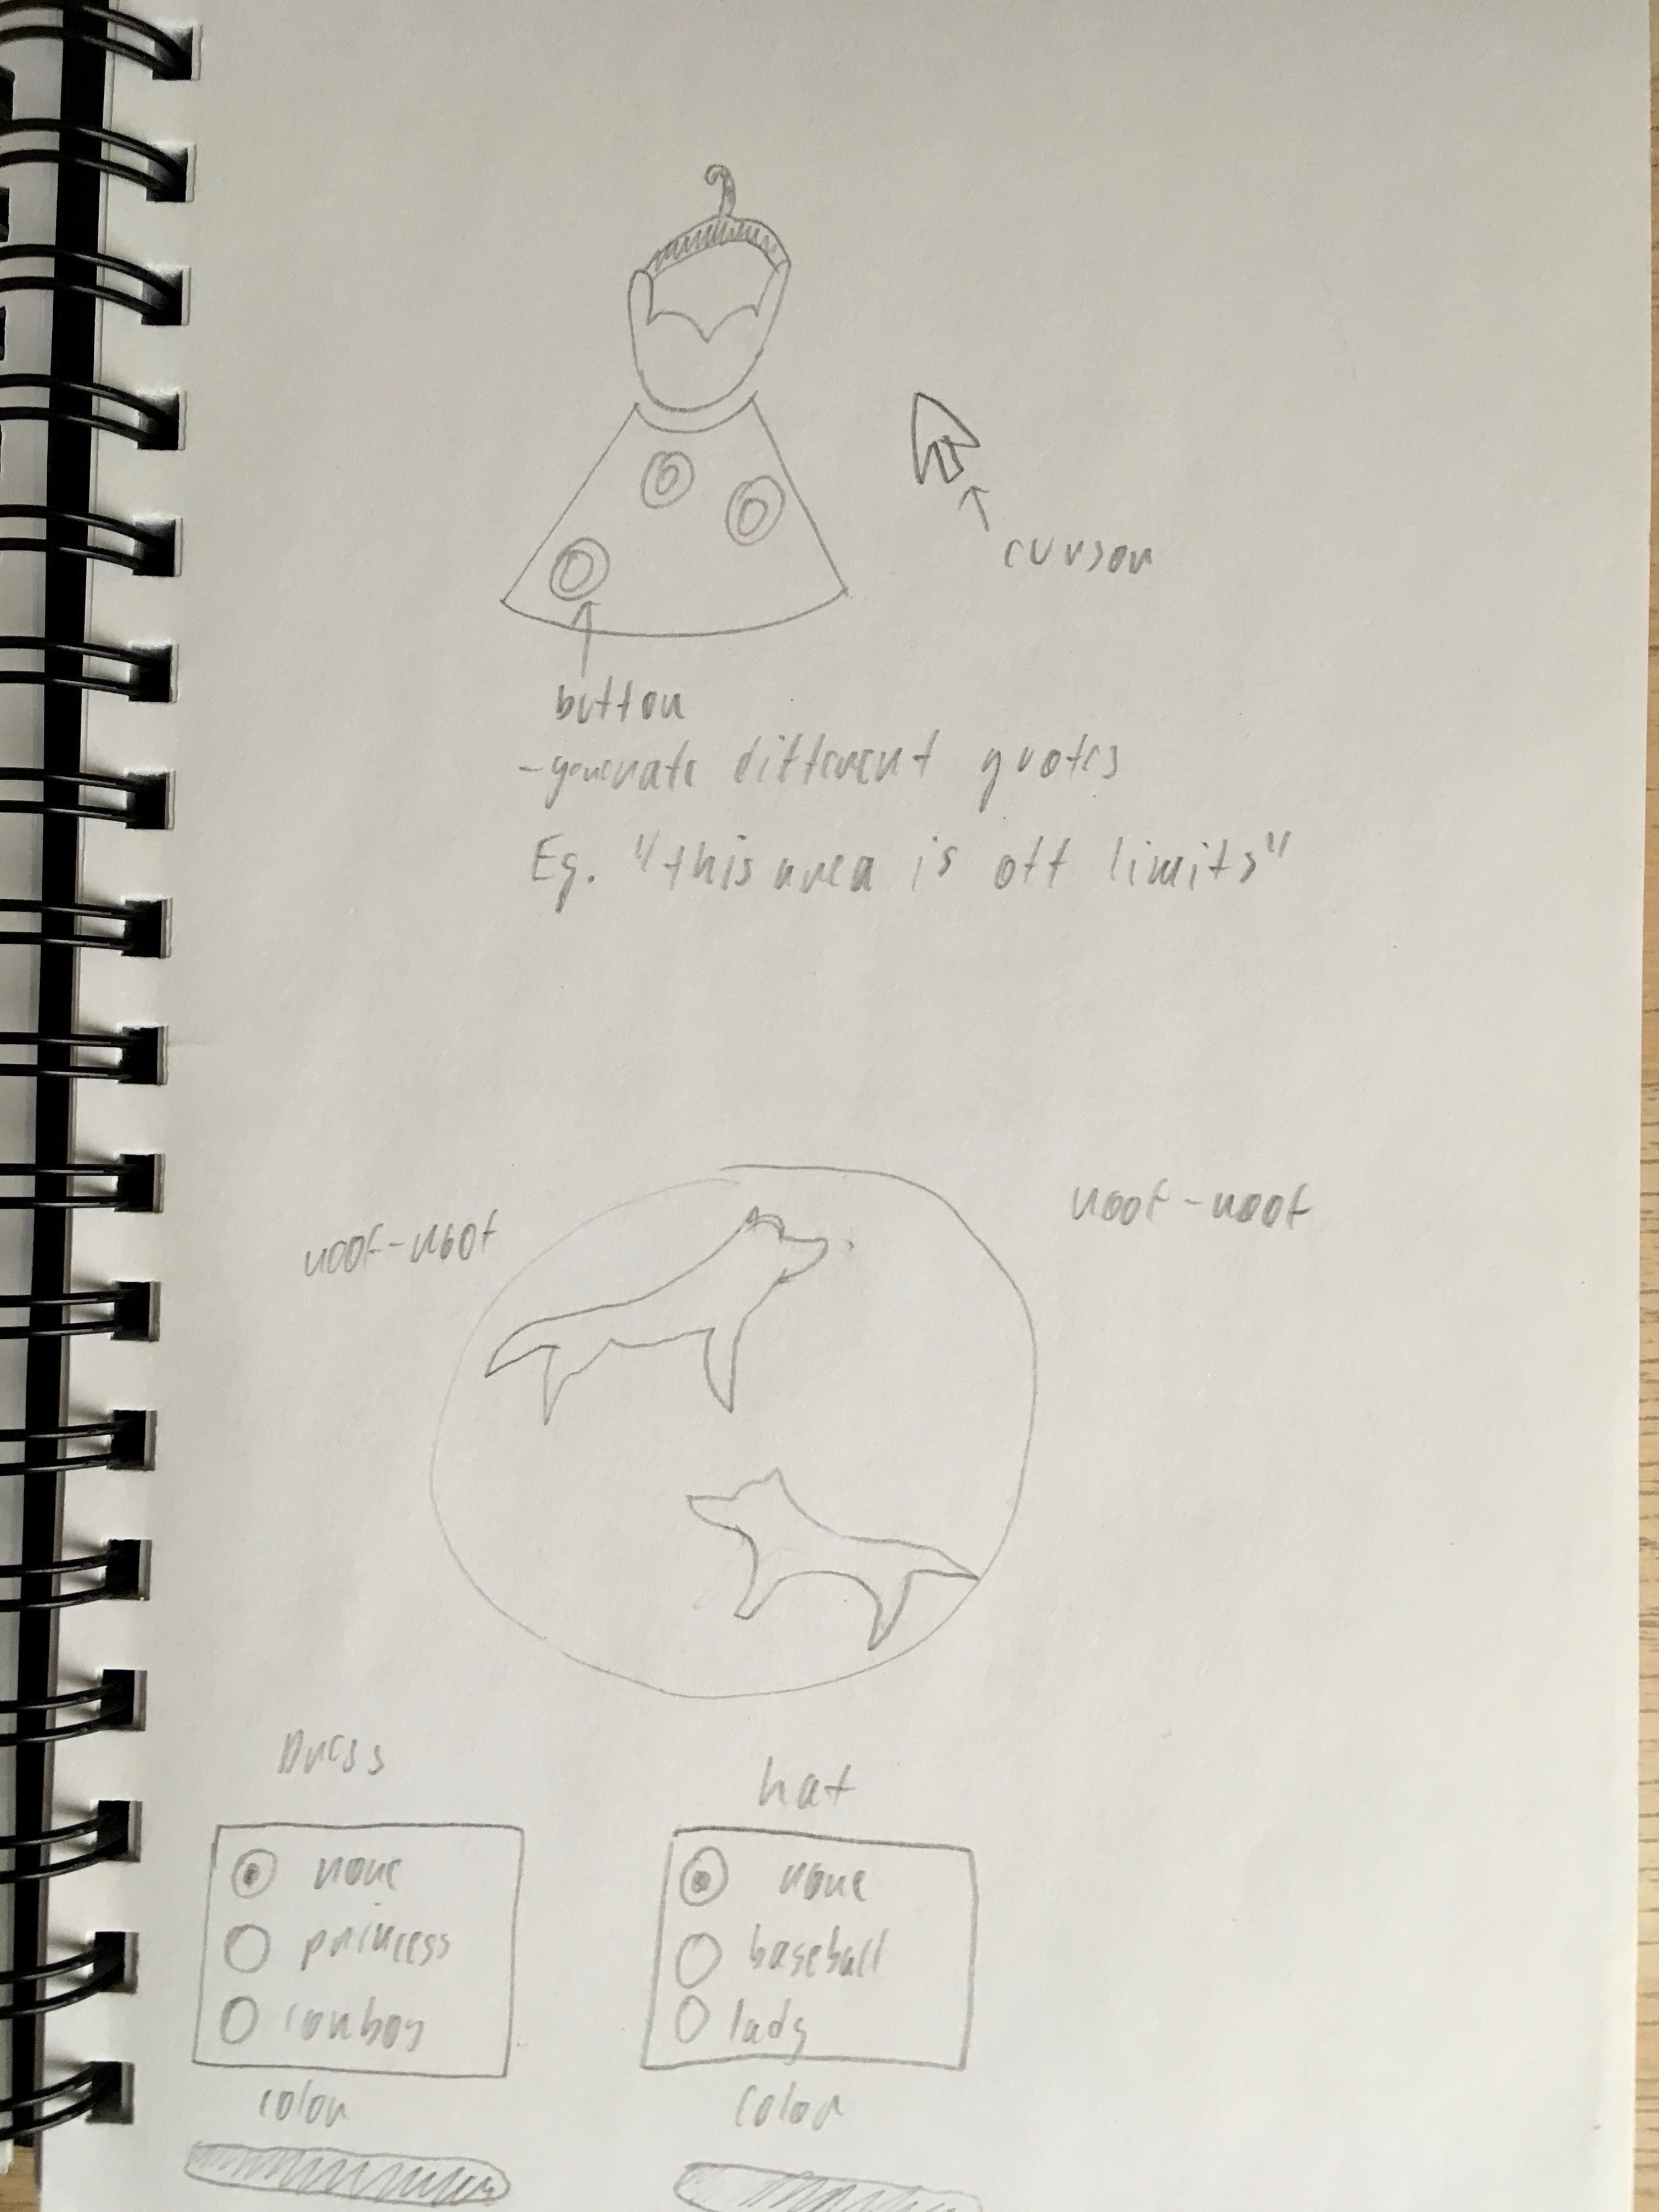 cursor
button
-generate different quotes
Eg. "this area is off limits"
woof-woof
woof-woof
Dress
hat
none
princess
cowboy
none
baseball
lady
color
color